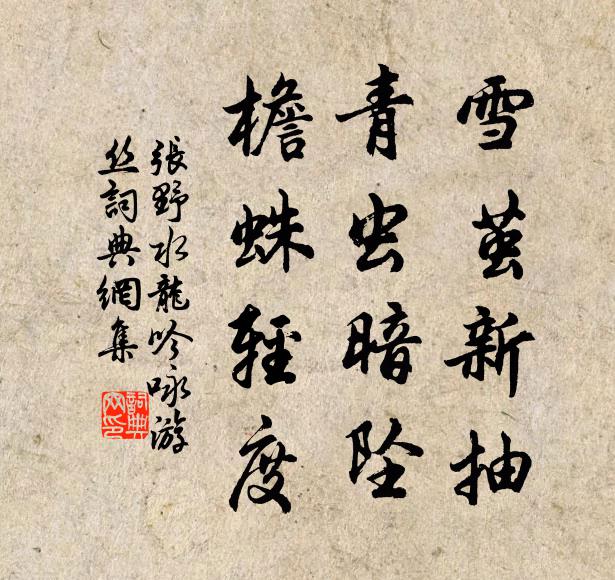 雪茧新抽
青虫暗坠
檐蛛輕度
張野水龍吟咏游
丝詞典網集
詞典网印